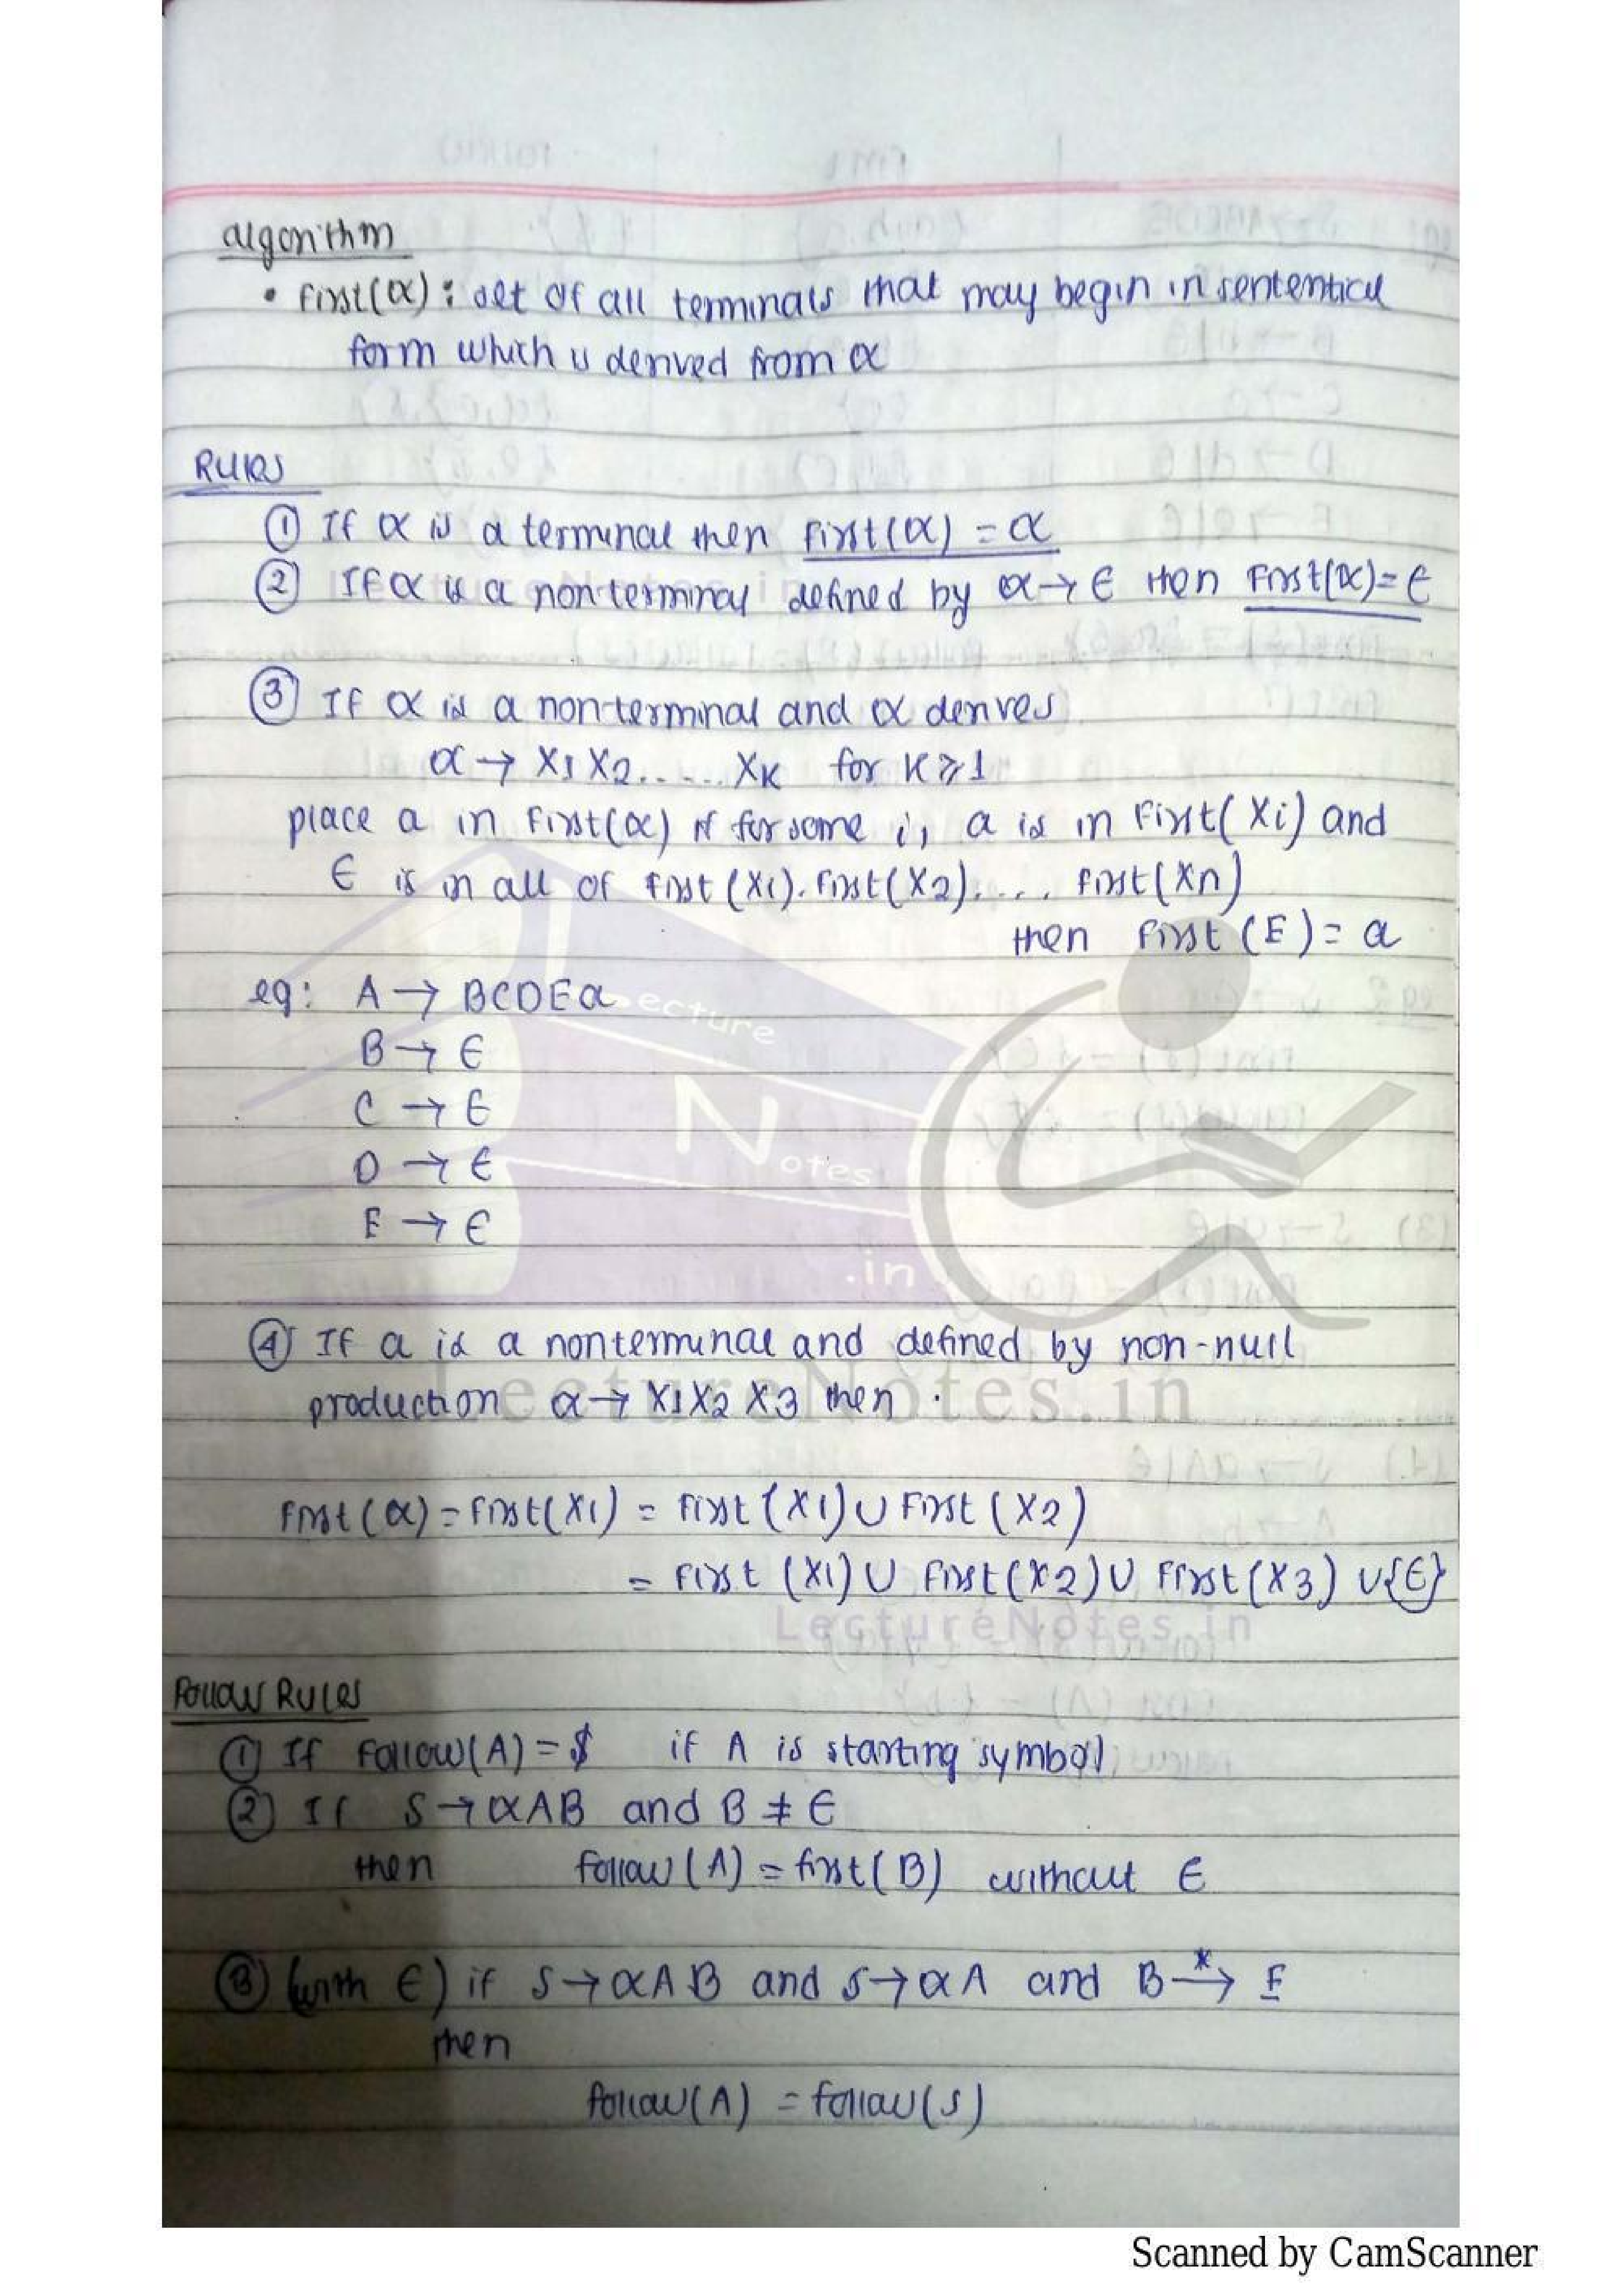 algorithm
• First(α) : set of all terminals that may begin in sentential
form which is derived from α
Rules
① If α is a terminal then First(α) = α
② If α is a nonterminal defined by α → ∈ then First(α) = ∈
③ If α is a nonterminal and α derives
α → X1 X2 ...... XK for K ≥ 1
place a in First(α) if for some i, a is in First(Xi) and
∈ is in all of First(X1). First(X2). ... First(Xn)
then First(E) = a
eg: A → BCDEa
B → ∈
C → ∈
D → ∈
E → ∈
Lecture
Notes
.in
④ If a is a nonterminal and defined by non-null
production α → X1 X2 X3 then .
LectureNotes.in
First(α) = First(X1) = First(X1) ∪ First(X2)
= First(X1) ∪ First(X2) ∪ First(X3) ∪ {∈}
LectureNotes.in
Follow Rules
① If Follow(A) = $ if A is starting symbol
② If S → αAB and B ≠ ∈
then Follow(A) = first(B) without ∈
③ (with ∈) if S → αAB and S → αA and B *→ E
then
Follow(A) = follow(S)
Scanned by CamScanner